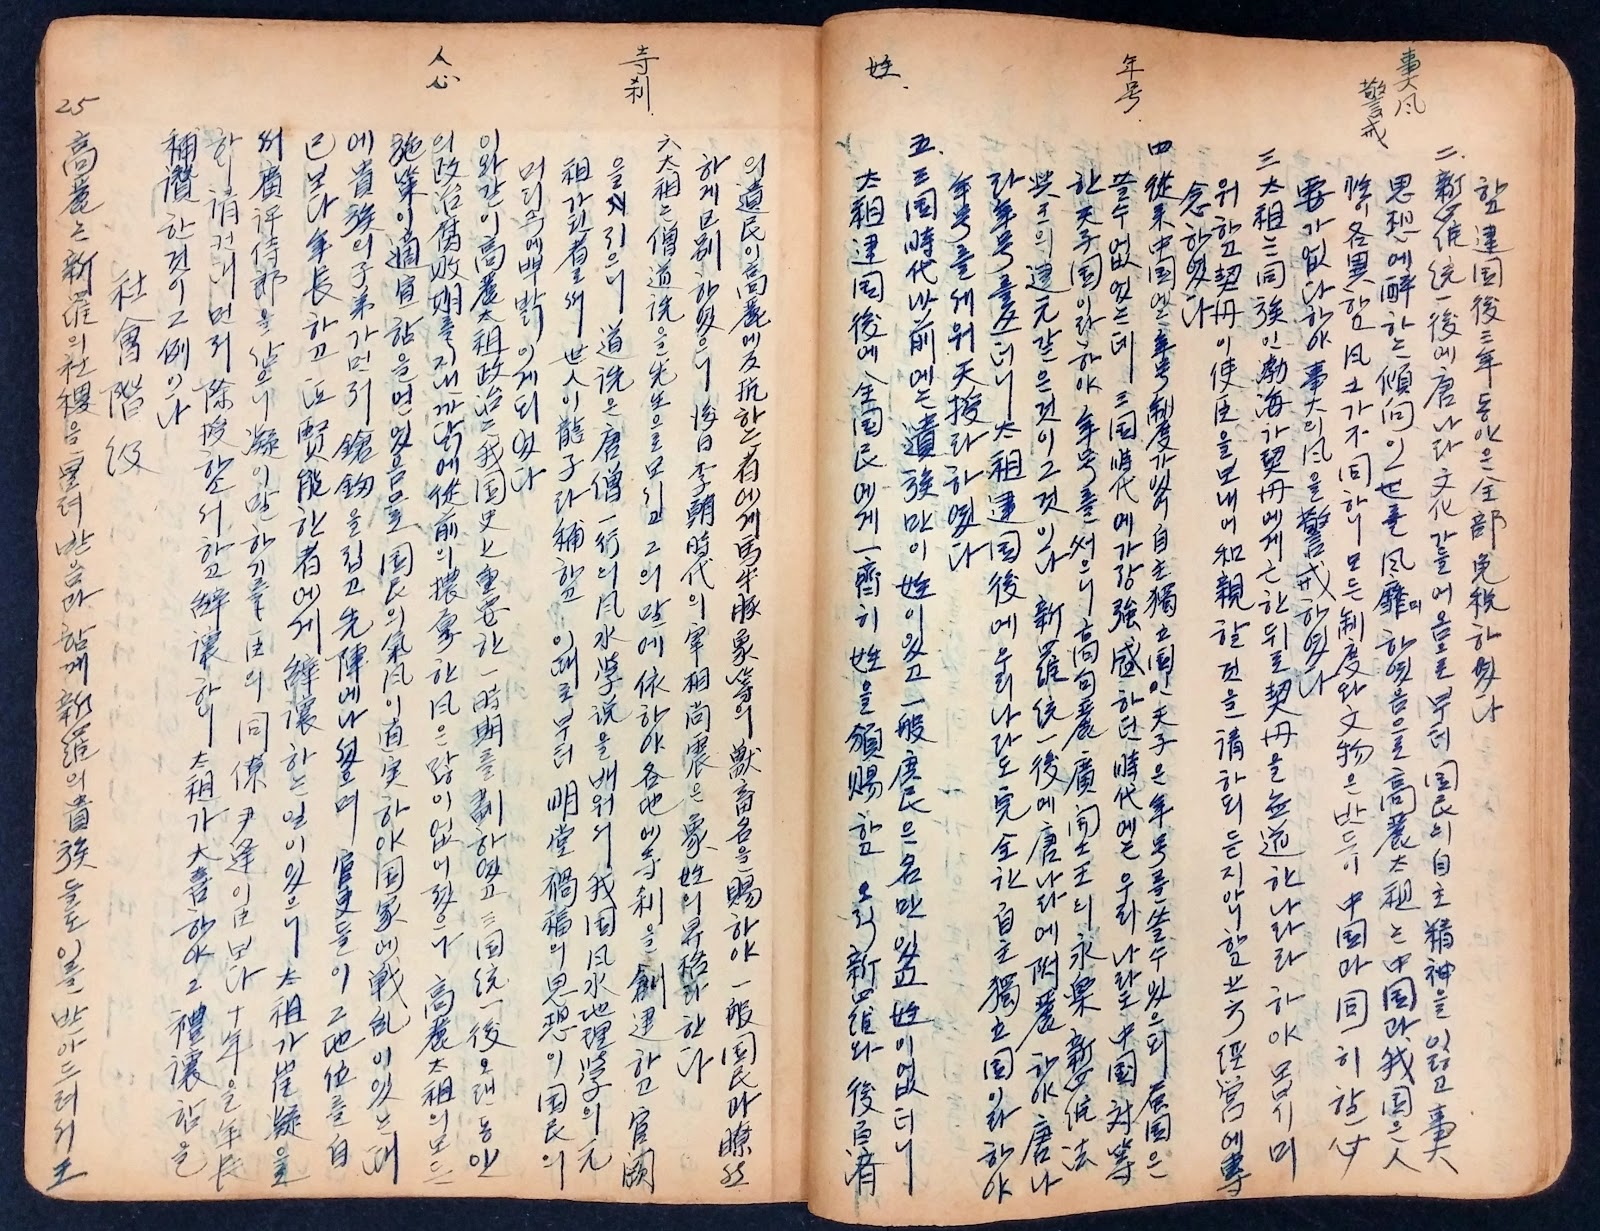 事大風
警戒
年号
姓
함 建国後三年동안은全部免稅하였다
二. 新羅統一後에唐나라文化가들어옴으로부터国民의自主精神을잃고事大
思想에醉하는傾向이一世를風靡하였음으로高麗太祖는中国과我国은人
괴各異함風土가不同하니모든制度와文物은반드시中国과同히할必
要가없다하야事大의风을警戒하였다
三 太祖는同族인渤海가契丹에게亡한뒤로契丹을無道한나라라하야모시며
위하고契丹이使臣을보내어和親할것을請하되듣지아니함 北方経営에専
念하였다
四 從来中国엔年号制度가있어自主獨立国인天子은年号를쓸수있으되属国은
쓸수없었는데 三国時代에가장強盛하던時代에는우리나라도中国対等
한天子国이라하야年号를썼으니高句麗廣開土王의永樂 新羅法
興王의建元같은것이그것이나 新羅統一後에唐나라에附麗하야唐나
라年号를쓰더니太祖建国後에우리나라도完全한自主獨立国이라하야
年号를세워天授라하였다
五. 三国時代以前에는遺族만이姓이있고一般庶民은名만있고姓이없더니
太祖建国後에全国民에게一齊히姓을頒賜함 오직新羅와後百済
寺刹
人心
의遺民이高麗에反抗하는者에게馬牛豚象等의獣畜名을賜하야一般国民과瞭然
하게区別하였으니後日李朝時代의宰相尚震은象姓의昇格라한다
六 太祖는僧道詵을先生으로모시고그의말에依하야各地에寺刹을創建하고官闕
을지으니 道詵은唐僧一行의风水学説을배워서我国风水地理学의元
祖가된者로써世人이龍子라稱함 이때로부터明堂禍福의思想이国民의
머리속에백이게되였다
이와같이高麗太祖政治는我国史上重要한一時期를劃하였고三国統一後오랜동안
의政治腐敗期를지내까닭에從前의擾寧한风은많이없어젔으나高麗太祖의모든
施策이適宜함을얻었음으로国民의氣风이適実하야国家에戦乱이있는때
에貴族의子弟가먼저鎗釼을집고先陣에나섰으며官吏들이그地位를自
己보다年長하고또賢能한者에게辭讓하는일이있으니太祖가崔凝을
써廣評侍郎을삼으니凝이말하기를臣의同僚尹逢이臣보다十年을年長
하니請컨대먼저除授하소서하고辭讓하니太祖가大喜하야그禮讓함을
稱讚한것이그例이다
社會階級
25 高麗는新羅의社稷을물려받음과함께新羅의貴族들도이를받아드려서主